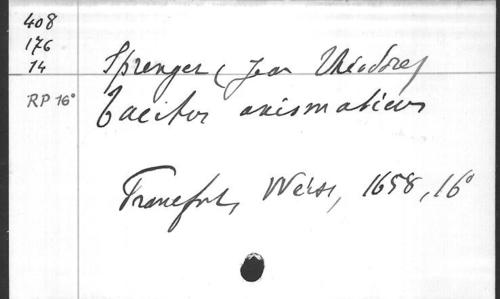 408
176
14
Sprenger (Jean Théodore)
RP 16°
Tacitus axiomaticus
Francfort, Weiss, 1658, 16°